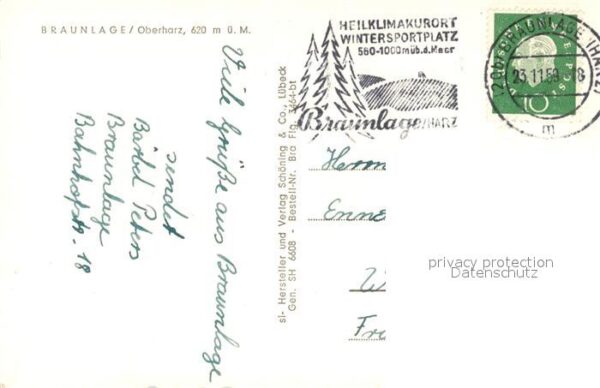 BRAUNLAGE/Oberharz, 620 m ü. M.
Viele Grüße aus Braunlage
sendet
Bärbel Peters
Braunlage
Bahnhofstr. 18
sl- Hersteller und Verlag Schöning & Co., Lübeck
Gen. SH 6608 - Bestell-Nr. Bra Flg. 3464-bt
HEILKLIMAKURORT
WINTERSPORTPLATZ
560-1000müb.d.Meer
Braunlage/HARZ
BRAUNLAGE (HARZ)
23.11.59
18
m
10
Herrn
Enne
W
Fr
privacy protection
Datenschutz